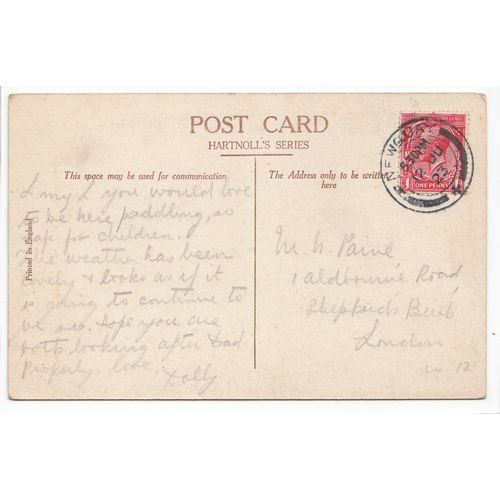 POST CARD
HARTNOLL'S SERIES
This space may be used for communication.
The Address only to be written here
Printed in England
L my L you would love
to be here paddling, so
safe for children.
The weather has been
lovely & looks as if it
is going to continue to
be so. Hope you are
both looking after Dad
Properly. love
Dolly
Paine
1 Aldbourne Road
Shepherd's Bush
London
W. 12
NEWQUAY
ONE PENNY